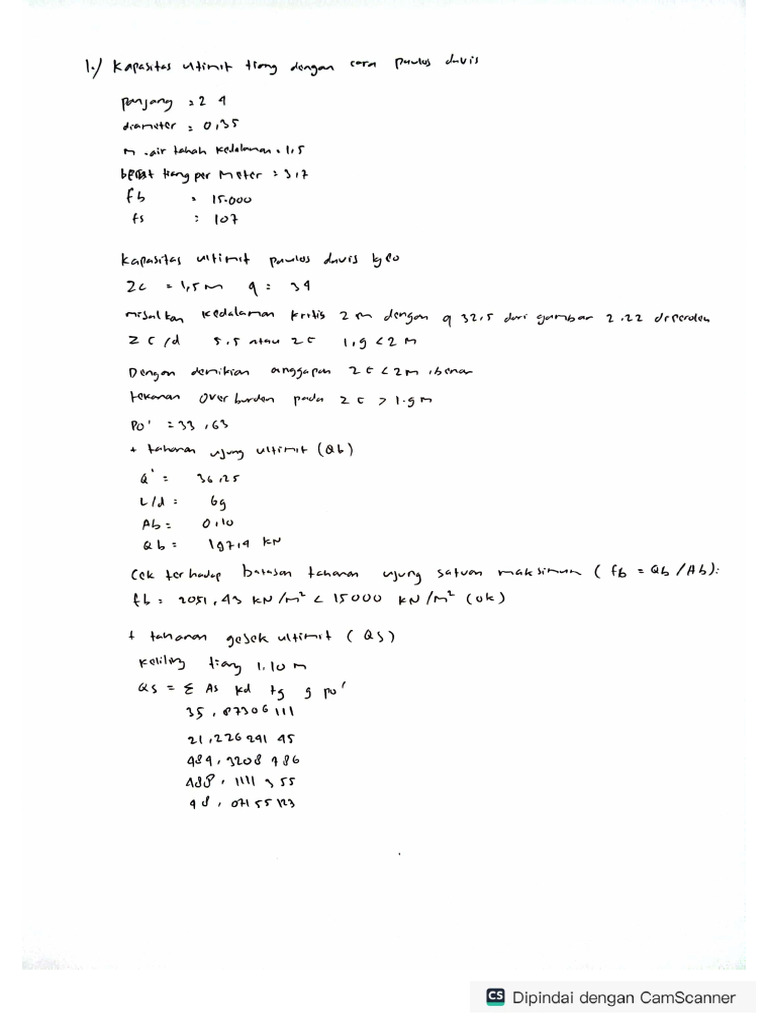 1./ Kapasitas ultimit tiang dengan cara paulus davis
panjang = 24
diameter = 0,35
m .air tanah kedalaman = 1,5
berat tiang per Meter = 3,7
fb = 15.000
fs : 107
Kapasitas ultimit paulus davis
Zc = 1,5 m φ = 34
misalkan kedalaman kritis 2 m dengan φ 32,5 dari gambar 2.22 diperoleh
Zc/d 5,5 atau zc 1,9 < 2 M
Dengan demikian anggapan zc < 2m , benar
tekanan Overburden pada zc > 1.9 m
Po' = 33,63
+ tahanan ujung ultimit (Qb)
Q' = 36,25
L/d = 69
Ab = 0,10
Qb = 197,4 KN
Cek terhadap batasan tahanan ujung satuan maksimum ( fb = Qb /Ab):
fb = 2051,43 KN/m² < 15000 KN/m² (ok)
+ tahanan gesek ultimit ( Qs)
keliling tiang 1,10 m
Qs = Σ As kd tg g po'
35,87306111
21,22624145
484,3208486
488,1111355
48,07155123
CS Dipindai dengan CamScanner